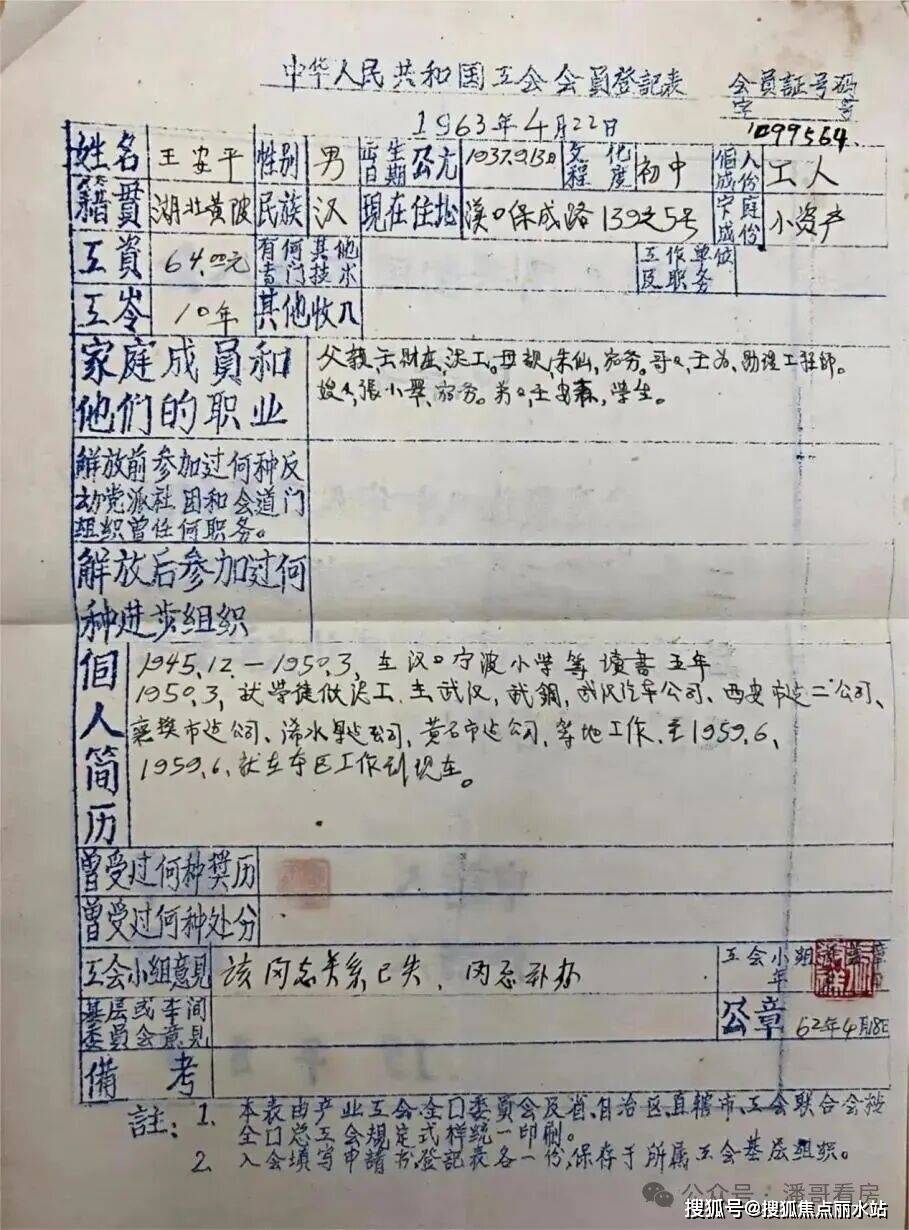 中华人民共和国工会会員登記表
会員証号码
字 号
1099564.
1963年4月22日
姓名 王安平 性别 男 出生日期 公元 1937.9.13日 文化程度 初中 個人成份 工人
籍貫 湖北黄陂 民族 汉 現在住址 漢口保成路139之5号 家庭成份 小资产
工資 64.00元 有何其他专门技术 工作单位及职务
工岺 10年 其他收入
家庭成員和他们的职业
父親,王财 泥工。母親,朱仙,家务。哥々,王 助理工程師。
嫂々,張小翠,家务。弟々,王安森,学生。
解放前参加过何种反
动党派社团和会道门
組織曾任何职务。
解放后参加过何
种进步組織
個人简历
1945.12.—1950.3,在汉口宁波小学等讀書五年
1950.3,就学徒做泥工.在武汉,武鋼,武汉汽車公司、西安市建二公司、
襄樊市建公司、浠水县建公司,黄石市建公司,等地工作.至1959.6,
1959.6,就在本区工作到現在。
曾受过何种奬历
曾受过何种处分
工会小組意見 该同志关系已失,同意补办 工会小組 章
年 日
基层或车间
委員会意見
公章 62年4月18日
備 考
註:1. 本表由产业工会全口委員会及省、自治区、直辖市、工会联合会按
全口总工会規定式样統一印刷。
2. 入会填写申請书、登記表各一份,保存于所属工会基层組织。
公众号:潘哥看房
搜狐号@搜狐焦点丽水站